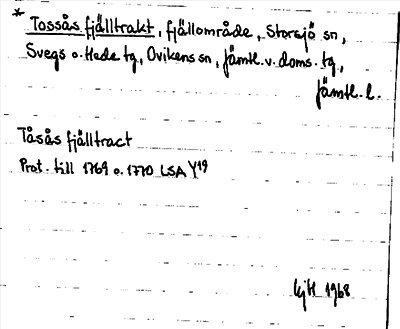 * Tossås fjälltrakt, fjällområde, Storsjö sn,
Svegs o. Hede tg, Ovikens sn, Jämtl. v. doms. tg,
Jämtl. l.
Tåsås fjälltract
Prot. till 1769 o. 1770 LSA Y19
1968